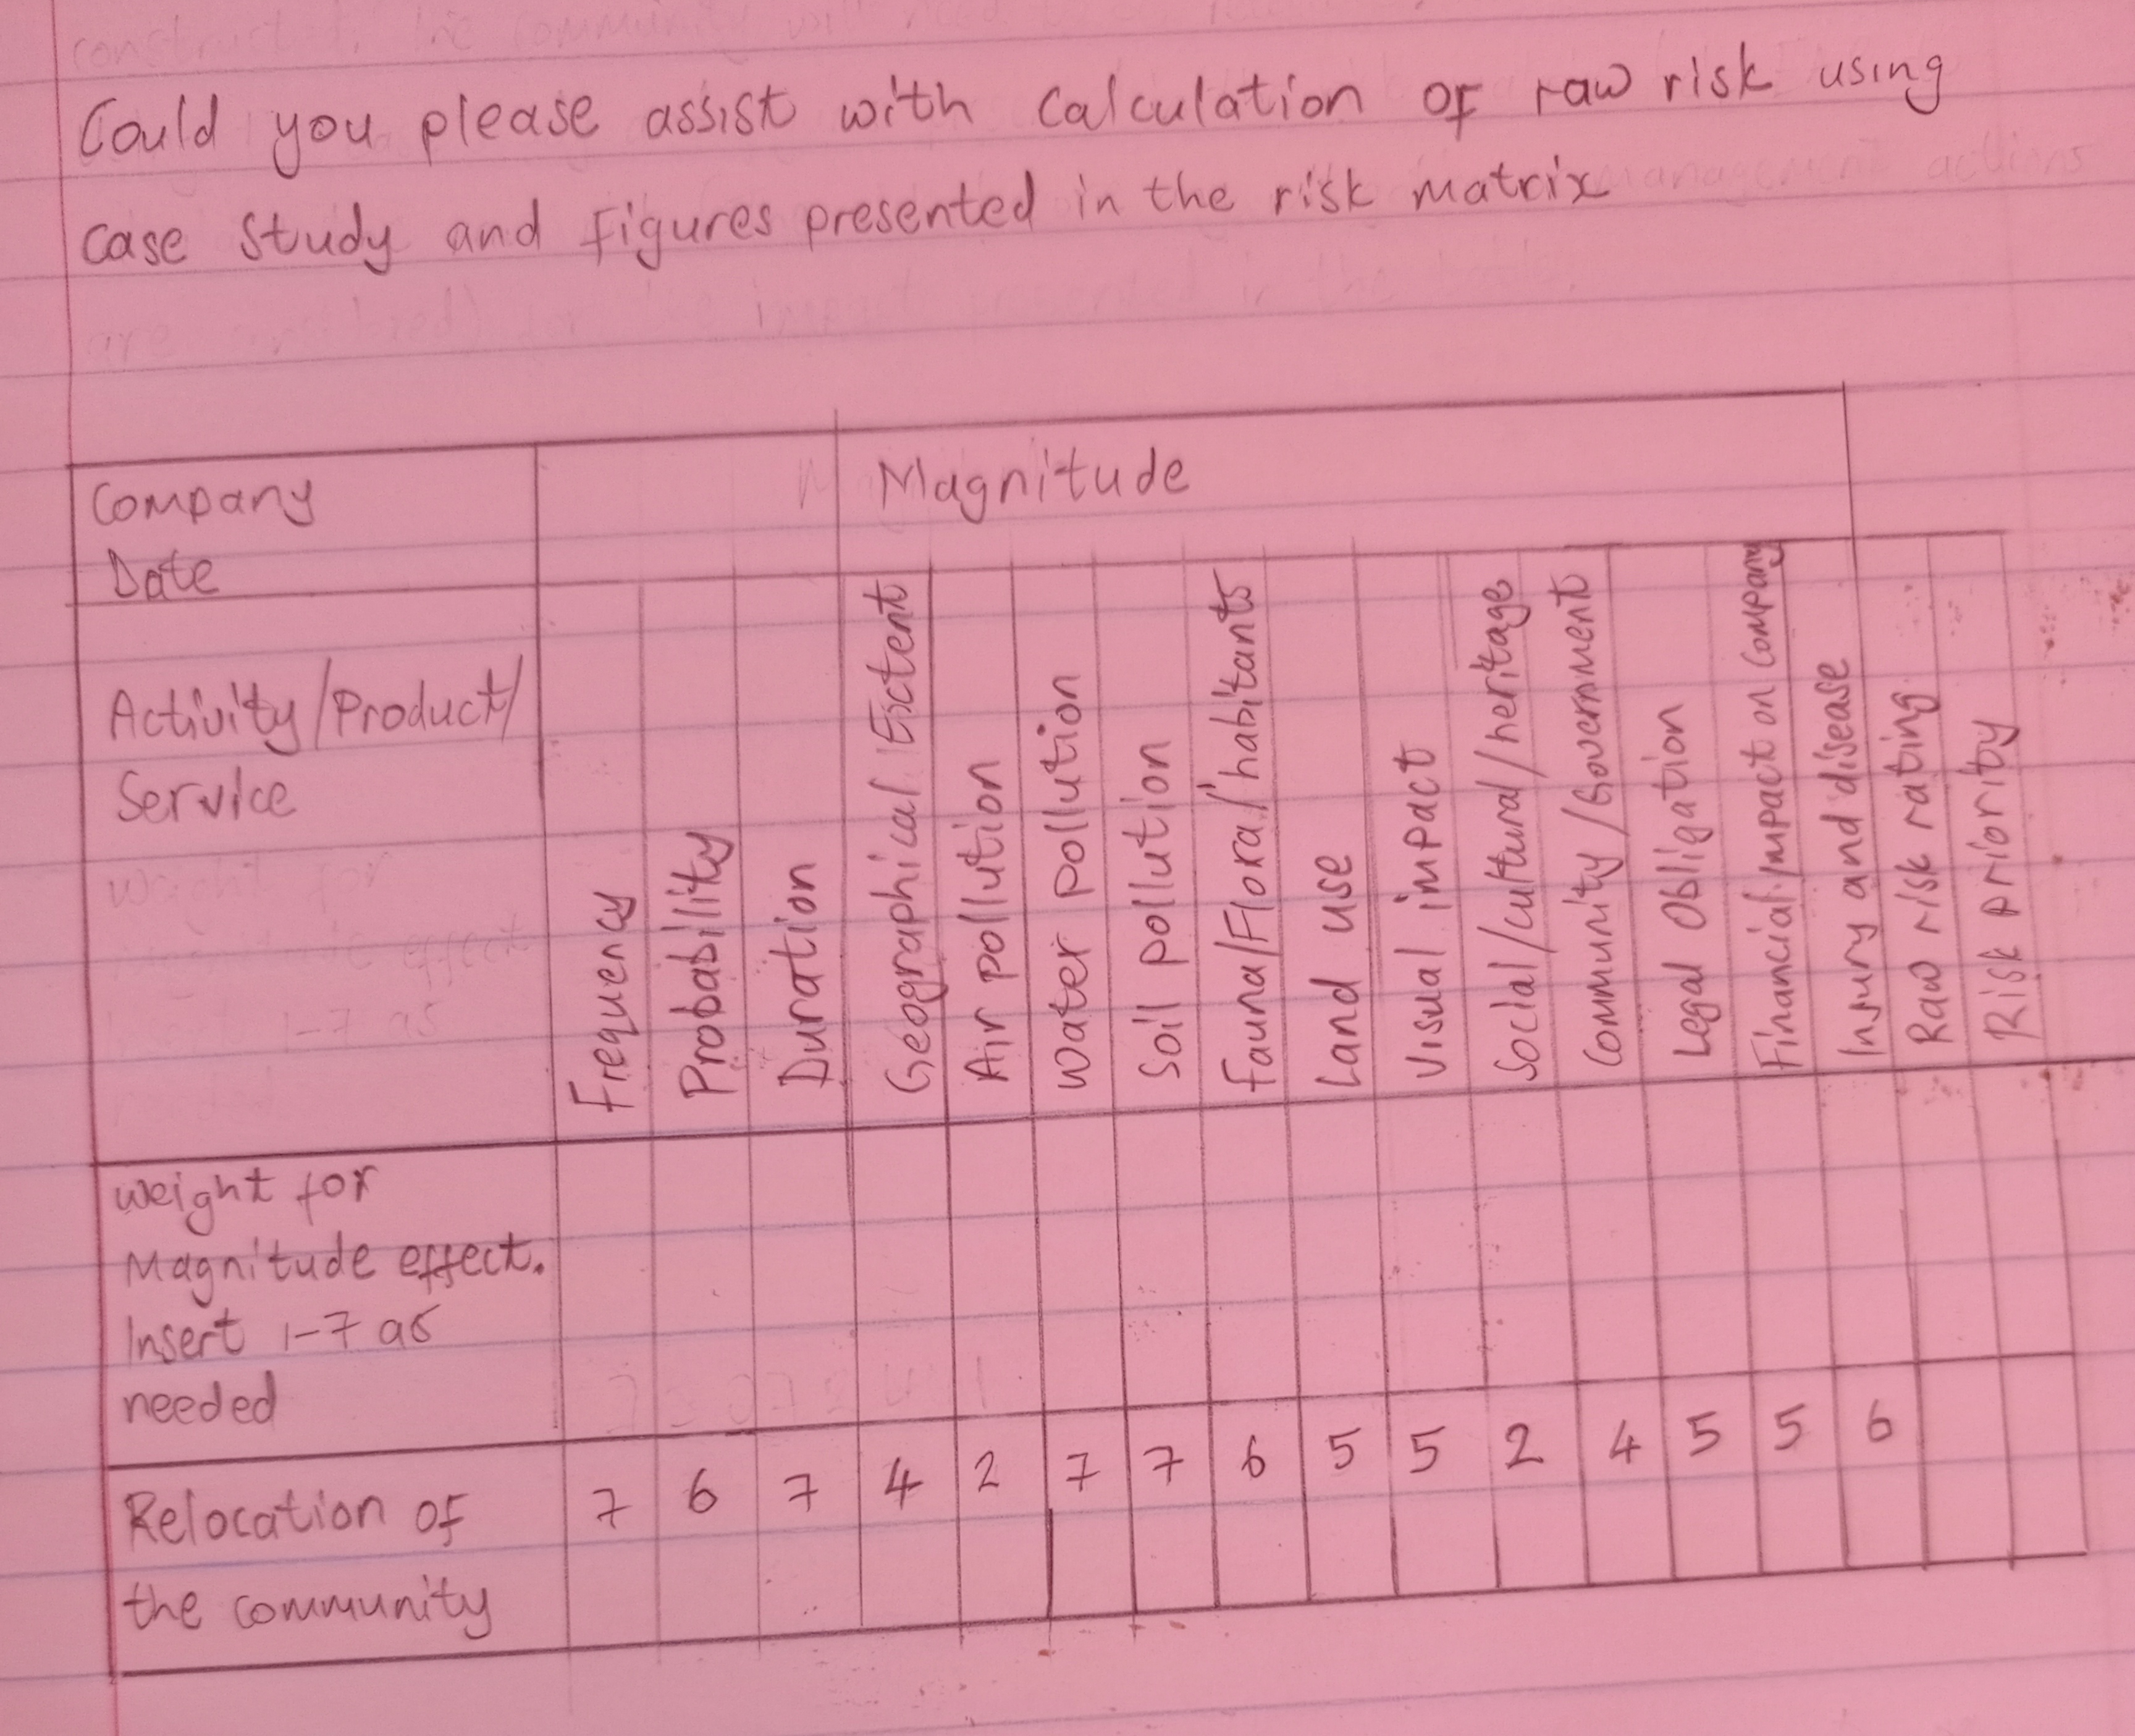 Could you please assist with calculation of raw risk using
case study and figures presented in the risk matrix
Company
Date
Magnitude
Activity/Product/
Service
Frequency
Probability
Duration
Geographical Extent
Air pollution
Water pollution
Soil pollution
Fauna/Flora/habitants
Land use
Visual impact
Social/cultural/heritage
Community/Government
Legal Obligation
Financial impact on company
Insury and disease
Raw risk rating
Risk priority
weight for
Magnitude effect.
Insert 1-7 as
needed
Relocation of
the community
7 6 7 4 2 7 7 6 5 5 2 4 5 5 6